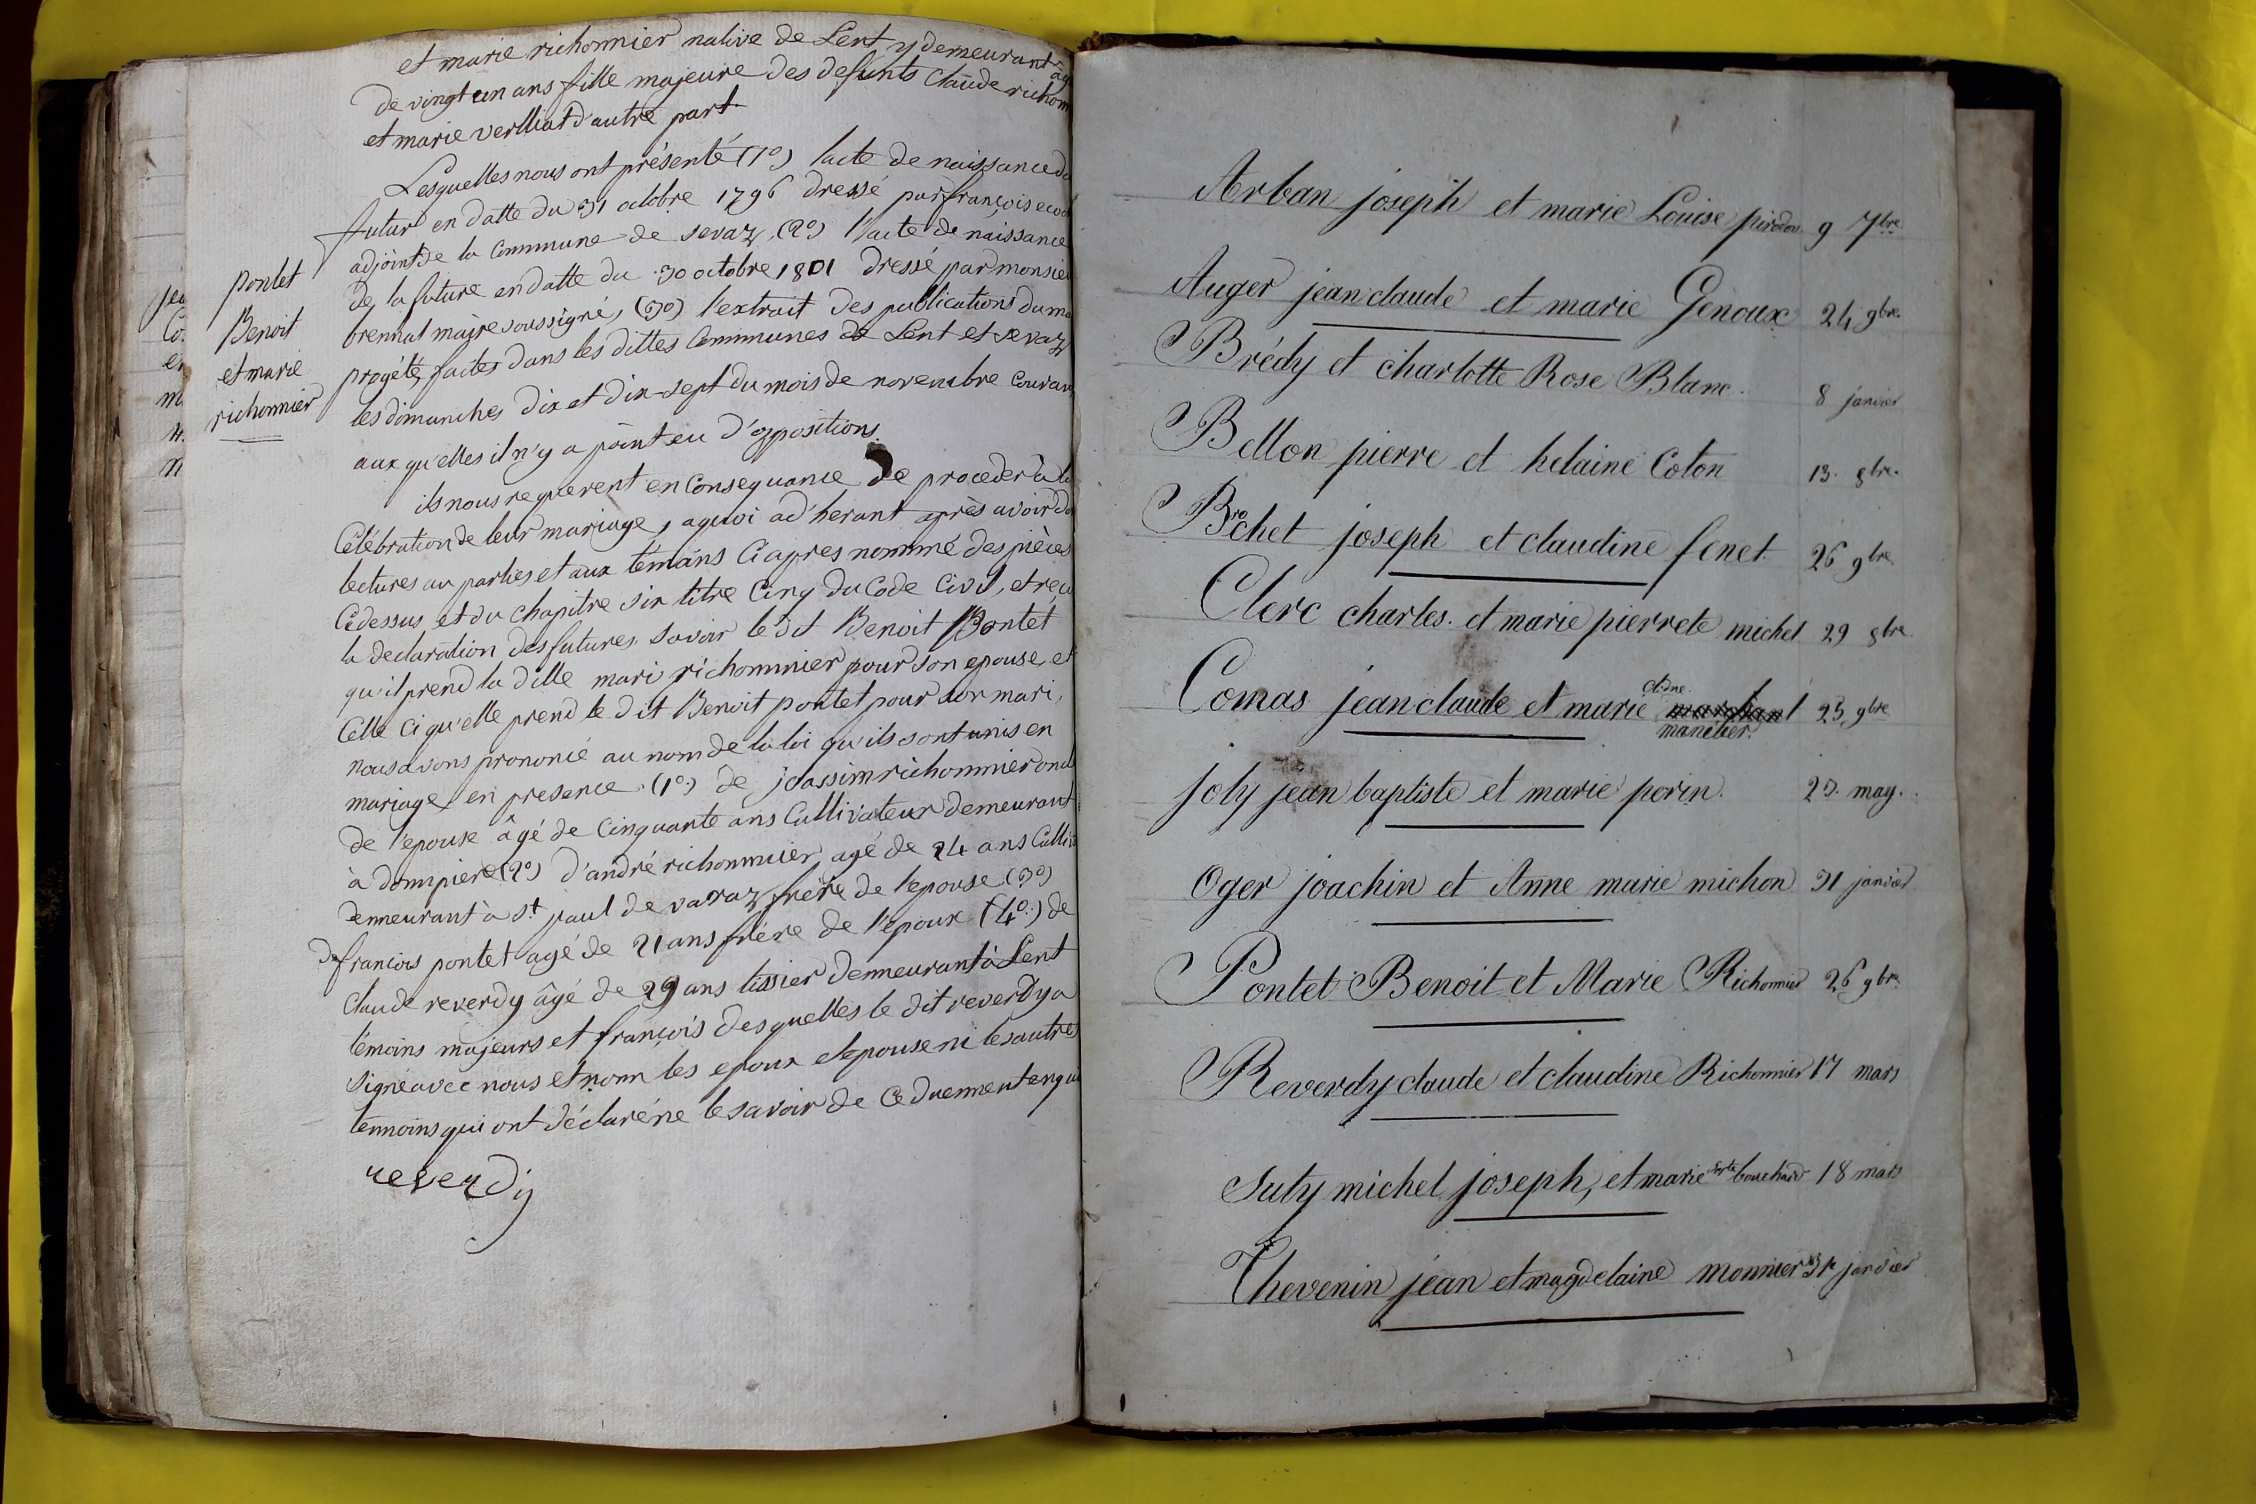 et marie richonnier native de Lent y demeurant âg
de vingt un ans fille majeure des defunts Claude richon
et marie verlliat d'autre part.
Lesquelles nous ont présenté (1°) lacte de naissance d
futur en datte du 31 octobre 1796 dressé par françois
adjoint de la Commune de sevaz, (2°) l'acte de naissance
de la future en datte du 30 octobre 1801 dressé par monsie
brennal maire soussigné, (3°) l'extrait des publications du ma
progété, faites dans les dittes Communes de Lent et sevaz
les dimanches dix et dix-sept du mois de novembre Couran
aux qu'elles il n'y a point eu d'oppositions.
ils nous requerent en Consequance de proceder à la
Célébration de leur mariage, a quoi ad'herant après avoir d
lectures au parties et aux témains Ci apres nommé des pièces
Cidessus et du chapitre six titre Cinq du Code Civil, et reçu
la declaration des futures savoir le dit Benoit Pontet
qu'il prend la ditte mari richonnier pour son epouse, et
Celle Ci qu'elle prend le dit Benoit pontet pour son mari,
nous avons prononcé au nom de la loi qu'ils sont unis en
mariage, en presence (1°) de joassim richonnier oncl
de l'epouse âgé de Cinquante ans Cultivateur demeurant
à dompiere (2°) d'andré richonnier agé de 24 ans Culliv
demeurant à st paul de varaz frère de l'epouse (3°)
de françois pontet agé de 21 ans frére de l'epoux (4°) de
Claude reverdy âgé de 29 ans tissier demeurant à Lent
témoins majeurs et françois desquelles le dit reverdy a
signé avec nous et nonn les epoux et epouse ni les autres
temoins qui ont déclaré ne le savoir de Ce duement enqui
reverdy
pontet
Benoit
et marie
richonnier
jea
Co.
en
m
4.
n
Arban joseph et marie Louise pirodon 9 7bre
Auger jean claude et marie Genoux 24 9bre.
Brédy et charlotte Rose Blanc. 8 janvier
Bellon pierre et helaine Coton 13. 8bre.
Brochet joseph et claudine fenet 26 9bre
Clerc charles. et marie pierrete michel 29 8bre
Comas jean claude et marie cl.dne. marchant manetier. 25 9bre
joly jean baptiste et marie perin. 23. may.
Oger joachin et Anne marie michon 31 janvier
Pontet Benoit et Marie Richonnier 26 9bre
Reverdy claude et claudine Richonnier 17 mars
Suty michel joseph, et marie bouchard 18 mars
Thevenin jean et magdelaine monnier janvier